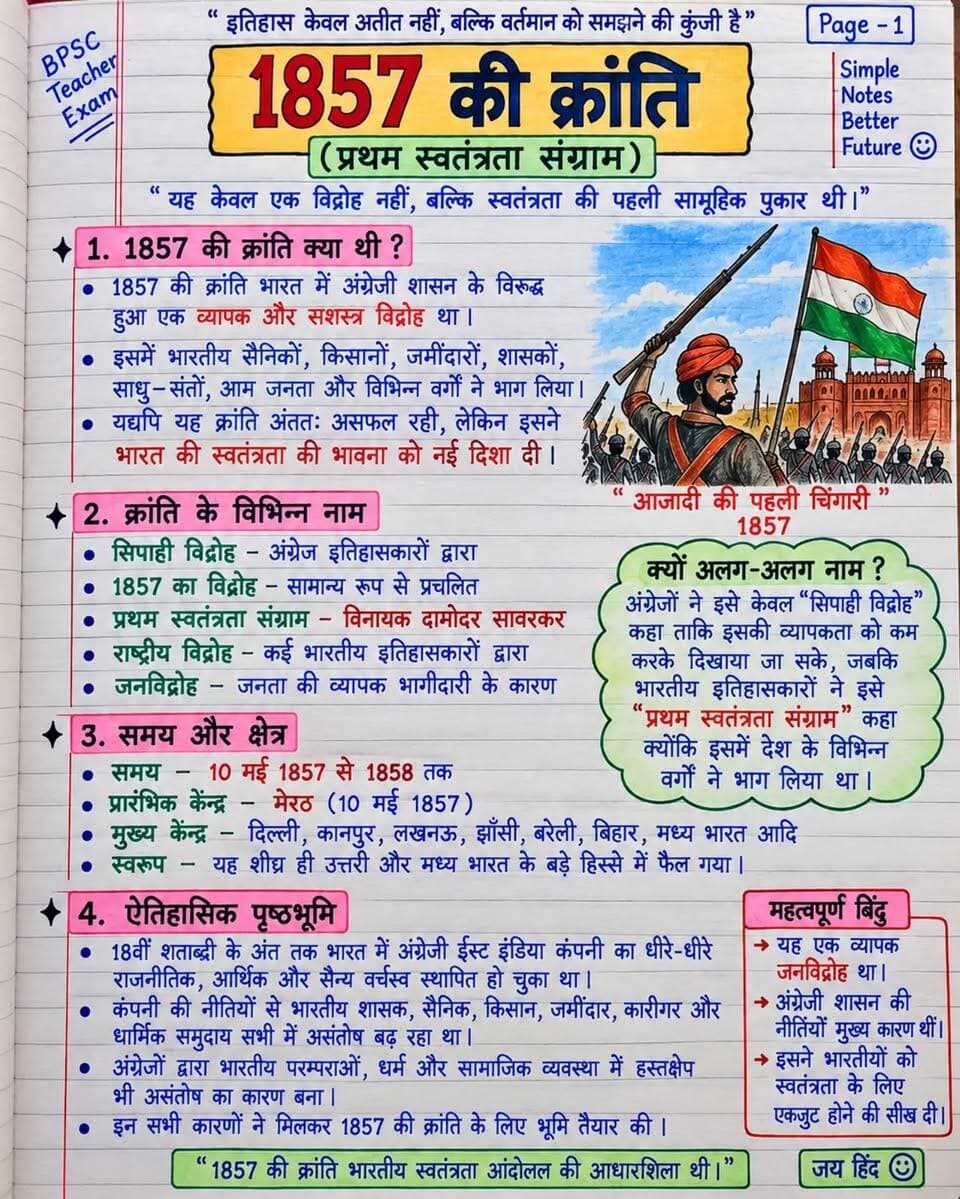 “ इतिहास केवल अतीत नहीं, बल्कि वर्तमान को समझने की कुंजी है ”
Page - 1
BPSC
Teacher
Exam
1857 की क्रांति
(प्रथम स्वतंत्रता संग्राम)
Simple
Notes
Better
Future ☺
“ यह केवल एक विद्रोह नहीं, बल्कि स्वतंत्रता की पहली सामूहिक पुकार थी।”
1. 1857 की क्रांति क्या थी ?
• 1857 की क्रांति भारत में अंग्रेजी शासन के विरुद्ध
हुआ एक व्यापक और सशस्त्र विद्रोह था।
• इसमें भारतीय सैनिकों, किसानों, जमींदारों, शासकों,
साधु-संतों, आम जनता और विभिन्न वर्गों ने भाग लिया।
• यद्यपि यह क्रांति अंततः असफल रही, लेकिन इसने
भारत की स्वतंत्रता की भावना को नई दिशा दी।
“ आजादी की पहली चिंगारी ”
1857
2. क्रांति के विभिन्न नाम
• सिपाही विद्रोह – अंग्रेज इतिहासकारों द्वारा
• 1857 का विद्रोह – सामान्य रूप से प्रचलित
• प्रथम स्वतंत्रता संग्राम – विनायक दामोदर सावरकर
• राष्ट्रीय विद्रोह – कई भारतीय इतिहासकारों द्वारा
• जनविद्रोह – जनता की व्यापक भागीदारी के कारण
क्यों अलग-अलग नाम ?
अंग्रेजों ने इसे केवल “सिपाही विद्रोह”
कहा ताकि इसकी व्यापकता को कम
करके दिखाया जा सके, जबकि
भारतीय इतिहासकारों ने इसे
“प्रथम स्वतंत्रता संग्राम” कहा
क्योंकि इसमें देश के विभिन्न
वर्गों ने भाग लिया था।
3. समय और क्षेत्र
• समय – 10 मई 1857 से 1858 तक
• प्रारंभिक केंन्द्र – मेरठ (10 मई 1857)
• मुख्य केंन्द्र – दिल्ली, कानपुर, लखनऊ, झाँसी, बरेली, बिहार, मध्य भारत आदि
• स्वरूप – यह शीघ्र ही उत्तरी और मध्य भारत के बड़े हिस्से में फैल गया।
4. ऐतिहासिक पृष्ठभूमि
• 18वीं शताब्दी के अंत तक भारत में अंग्रेजी ईस्ट इंडिया कंपनी का धीरे-धीरे
राजनीतिक, आर्थिक और सैन्य वर्चस्व स्थापित हो चुका था।
• कंपनी की नीतियों से भारतीय शासक, सैनिक, किसान, जमींदार, कारीगर और
धार्मिक समुदाय सभी में असंतोष बढ़ रहा था।
• अंग्रेजों द्वारा भारतीय परम्पराओं, धर्म और सामाजिक व्यवस्था में हस्तक्षेप
भी असंतोष का कारण बना।
• इन सभी कारणों ने मिलकर 1857 की क्रांति के लिए भूमि तैयार की।
महत्वपूर्ण बिंदु
→ यह एक व्यापक
जनविद्रोह था।
→ अंग्रेजी शासन की
नीतियों मुख्य कारण थीं।
→ इसने भारतीयों को
स्वतंत्रता के लिए
एकजुट होने की सीख दी।
“1857 की क्रांति भारतीय स्वतंत्रता आंदोलल की आधारशिला थी।”
जय हिंद ☺